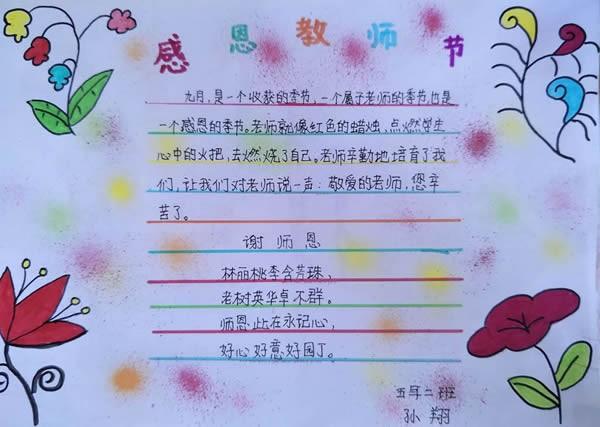 感恩教师节
九月,是一个收获的季节,一个属于老师的季节,也是
一个感恩的季节。老师就像红色的蜡烛,点燃学生
心中的火把,去燃烧了自己。老师辛勤地培育了我
们,让我们对老师说一声:敬爱的老师,您辛
苦了。
谢师恩
林丽桃李含芳珠、
老树英华卓不群。
师恩此在永记心,
好心好意好园丁。
五年二班
孙翔